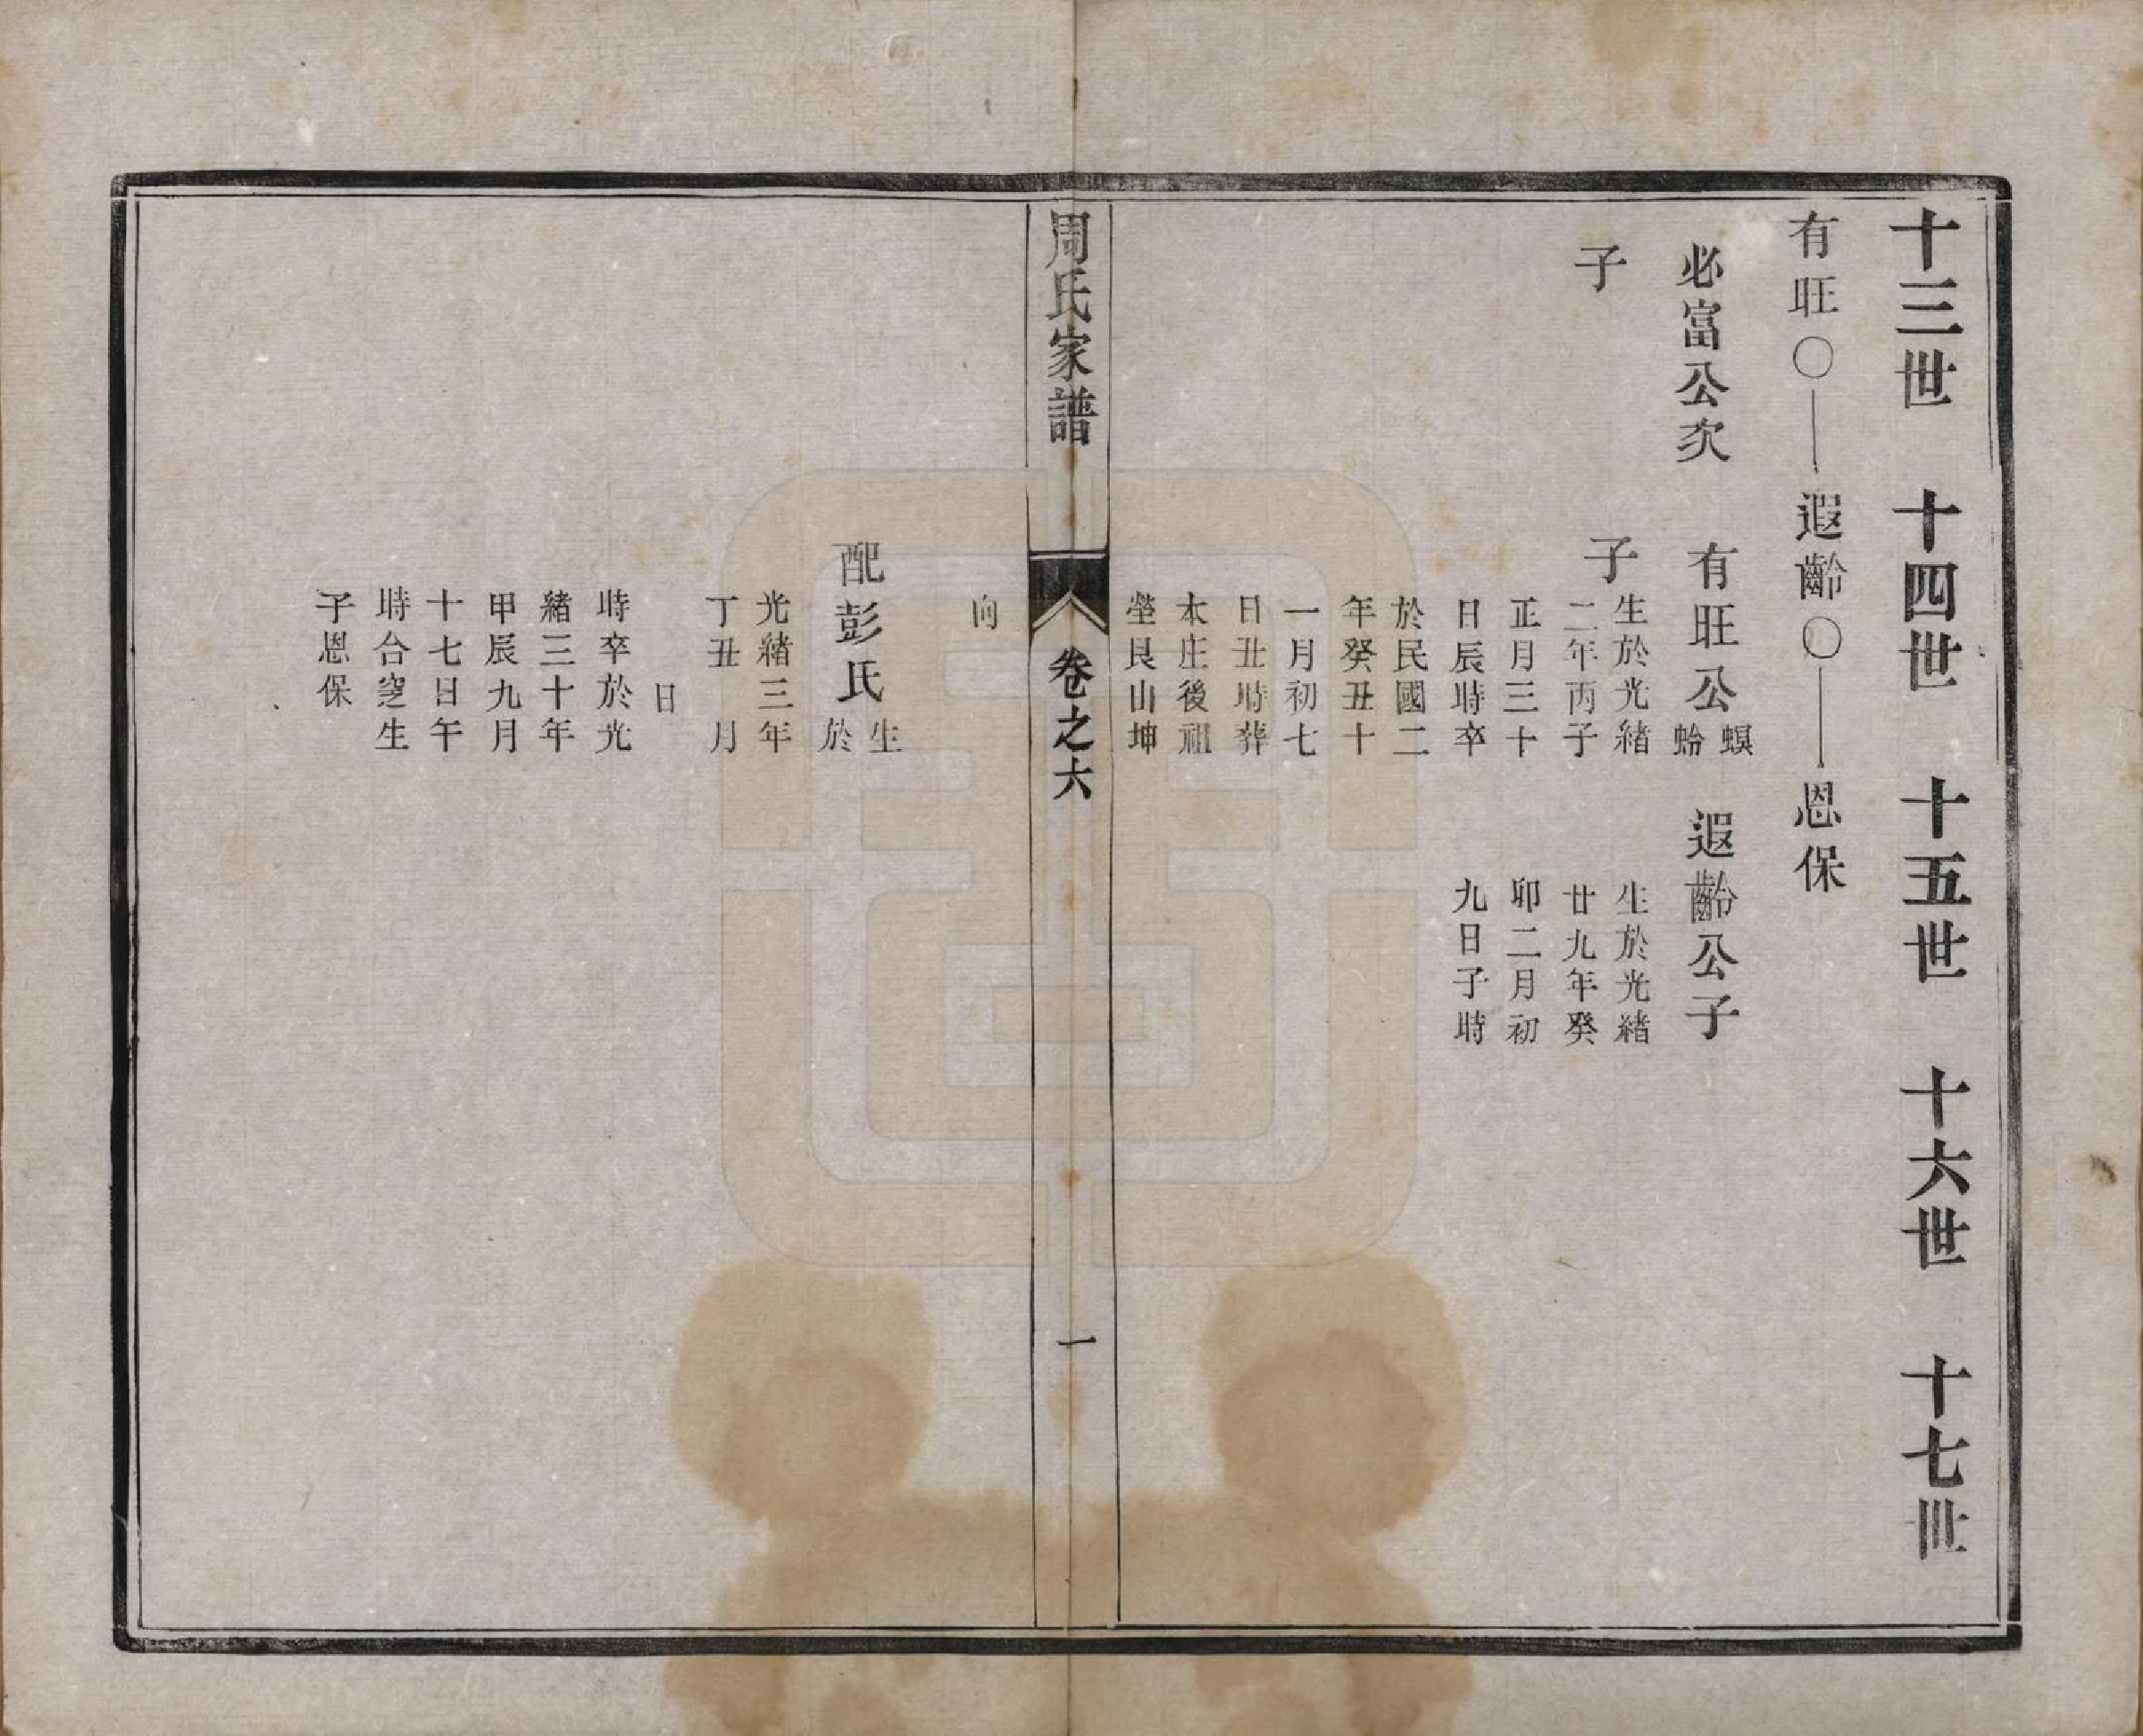 十三世　十四世　十五世　十六世　十七世
有旺〇—遐齡〇—恩保
必富公次
子
有旺公螟
蛉
子
生於光緒
二年丙子
正月三十
日辰時卒
於民國二
年癸丑十
一月初七
日丑時葬
本庄後祖
塋艮山坤
向
遐齡公子
生於光緒
廿九年癸
卯二月初
九日子時
周氏家譜
卷之六
一
配彭氏生
於
光緒三年
丁丑　月
日
時卒於光
緒三十年
甲辰九月
十七日午
時合窆生
子恩保